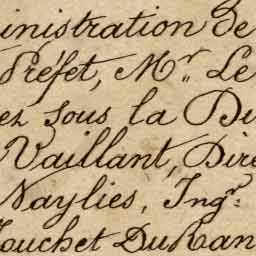 inistration de
Préfet, Mr. Le
ez sous la Di
Vaillant, Dire
Naylies, Ingr.
ouchet DuRan